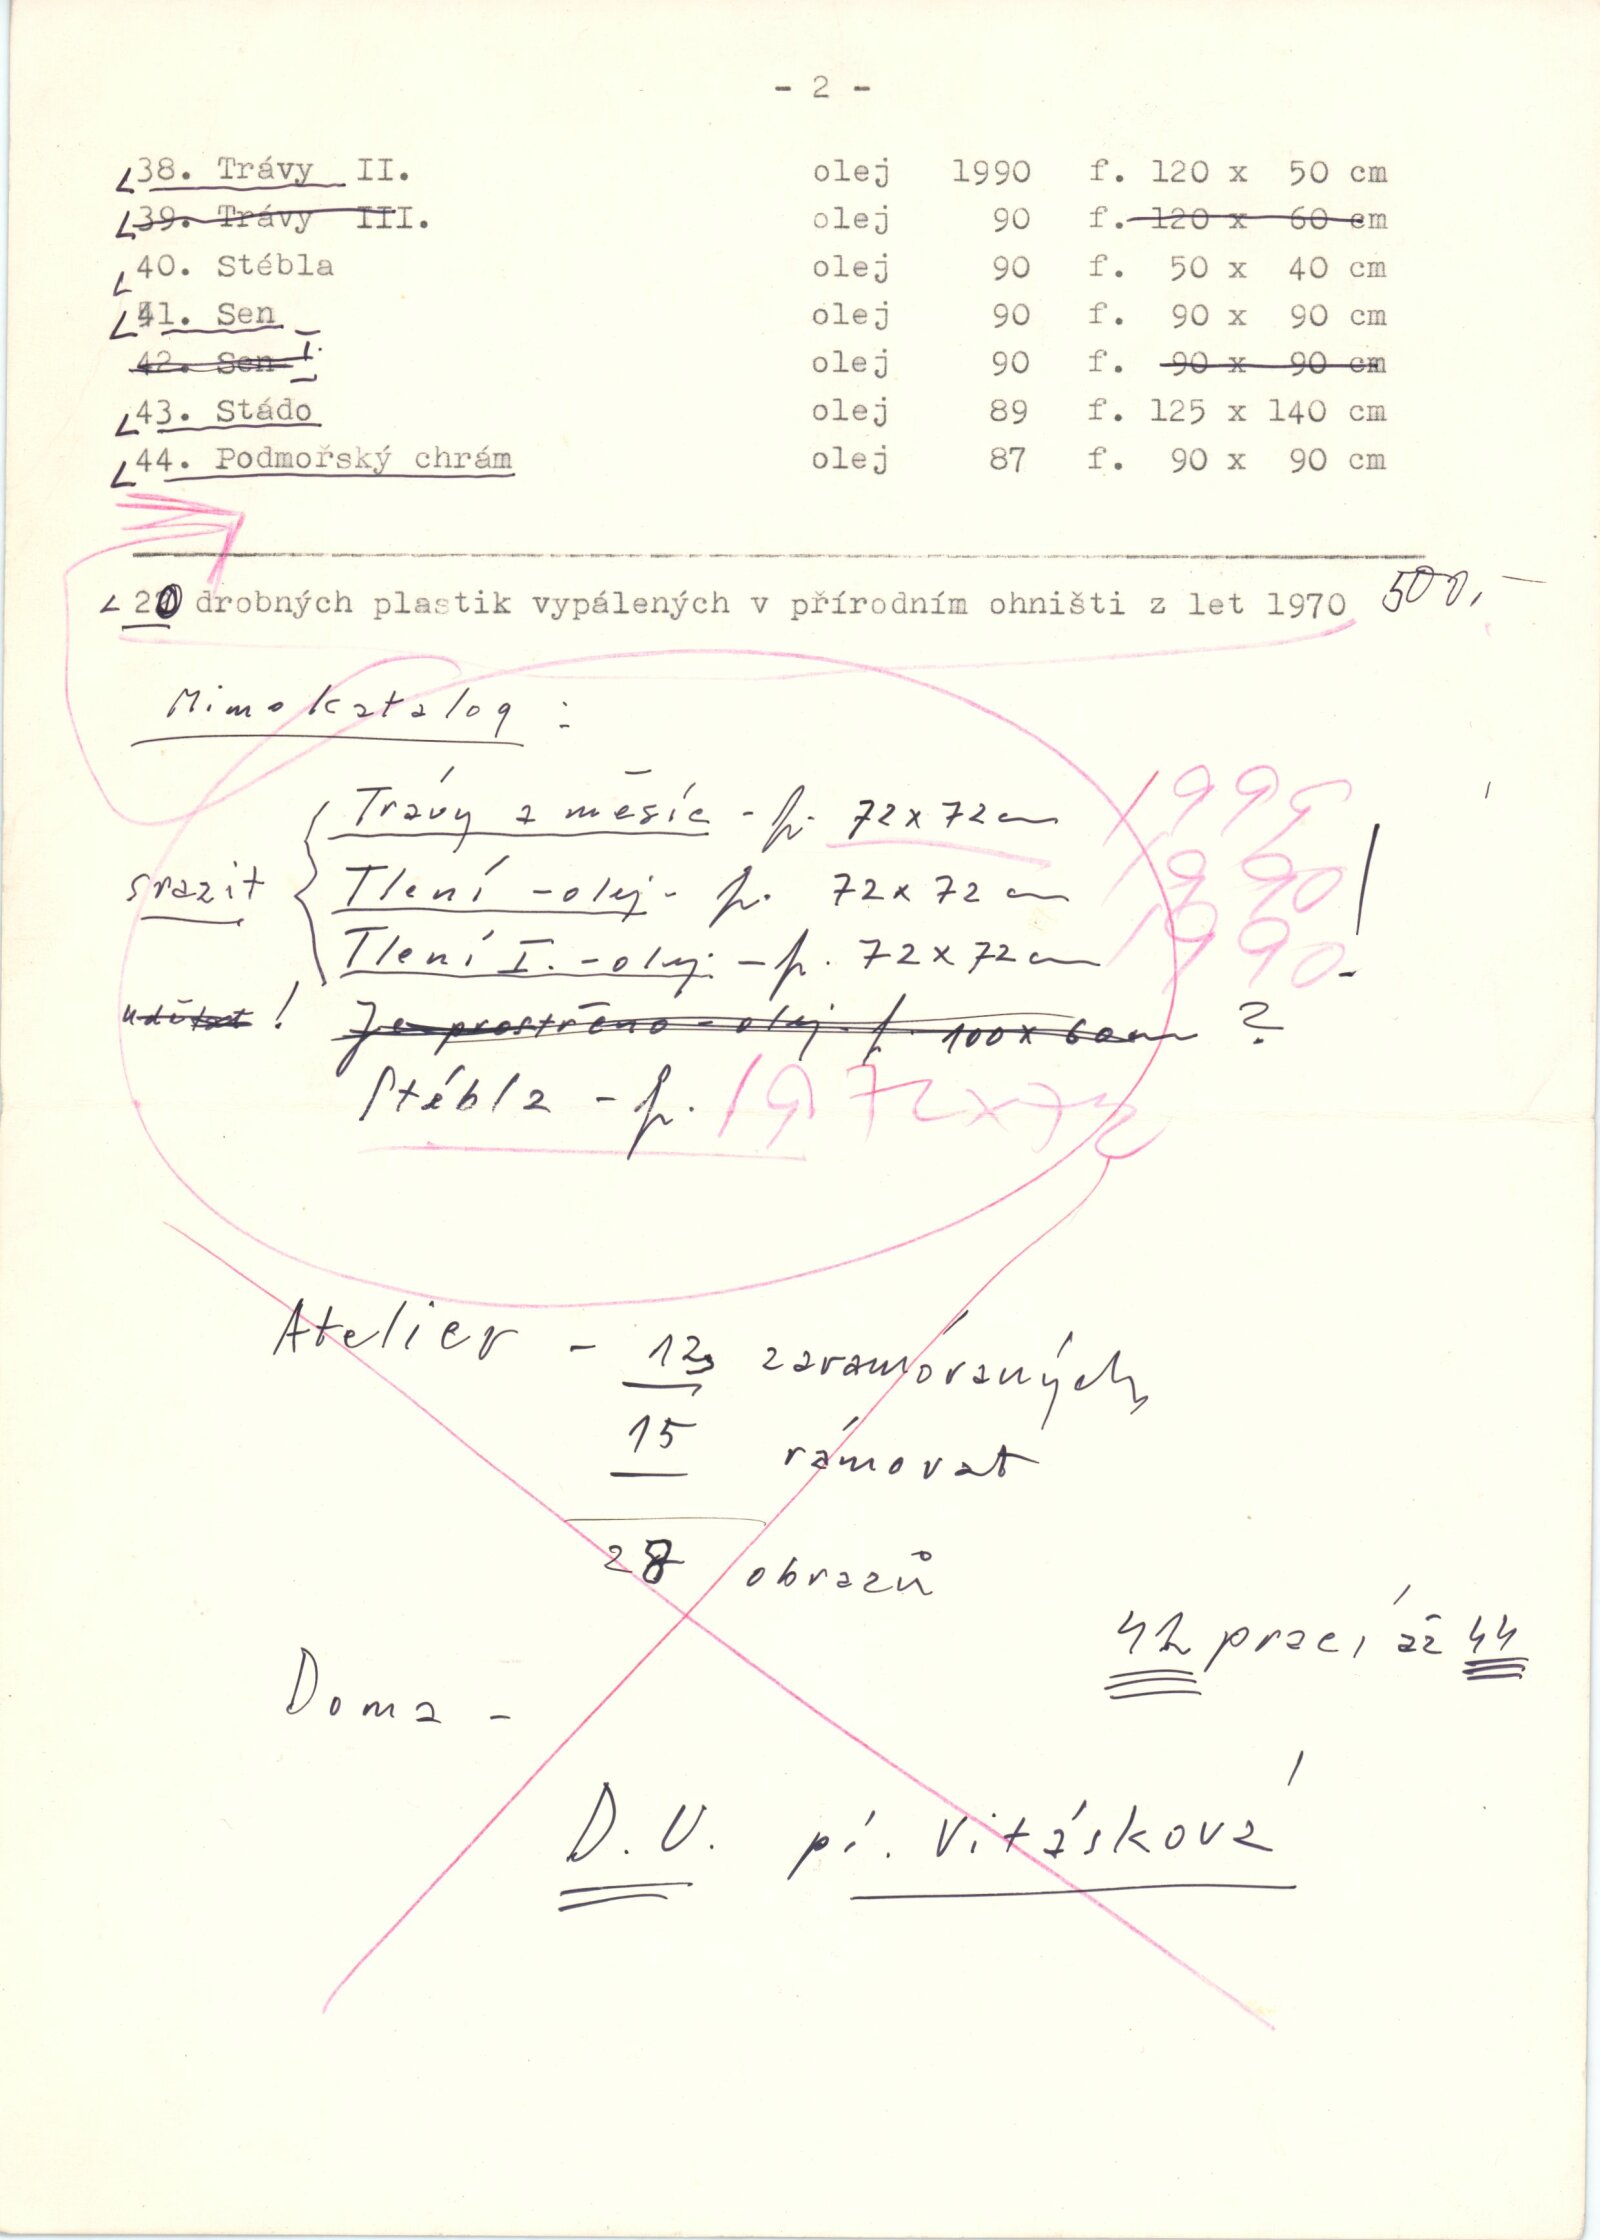 - 2 -
38. Trávy II. olej 1990 f. 120 x 50 cm
39. Trávy III. olej 90 f. 120 x 60 cm
40. Stébla olej 90 f. 50 x 40 cm
41. Sen olej 90 f. 90 x 90 cm
42. Sen I. olej 90 f. 90 x 90 cm
43. Stádo olej 89 f. 125 x 140 cm
44. Podmořský chrám olej 87 f. 90 x 90 cm
20 drobných plastik vypálených v přírodním ohništi z let 1970 500,-
Mimo katalog :
Trávy a měsíc - f. 72 x 72 cm 1995
srazit Tlení - olej - f. 72 x 72 cm 1990
Tlení I. - olej - f. 72 x 72 cm 1990
! Je prostřeno - olej - f. 100 x 60 cm ?
Stébla - f. 72 x 72
Atelier - 12 zarámovaných
15 rámovat
28 obrazů
42 prací až 44
Doma -
D.U. pí. Vitásková